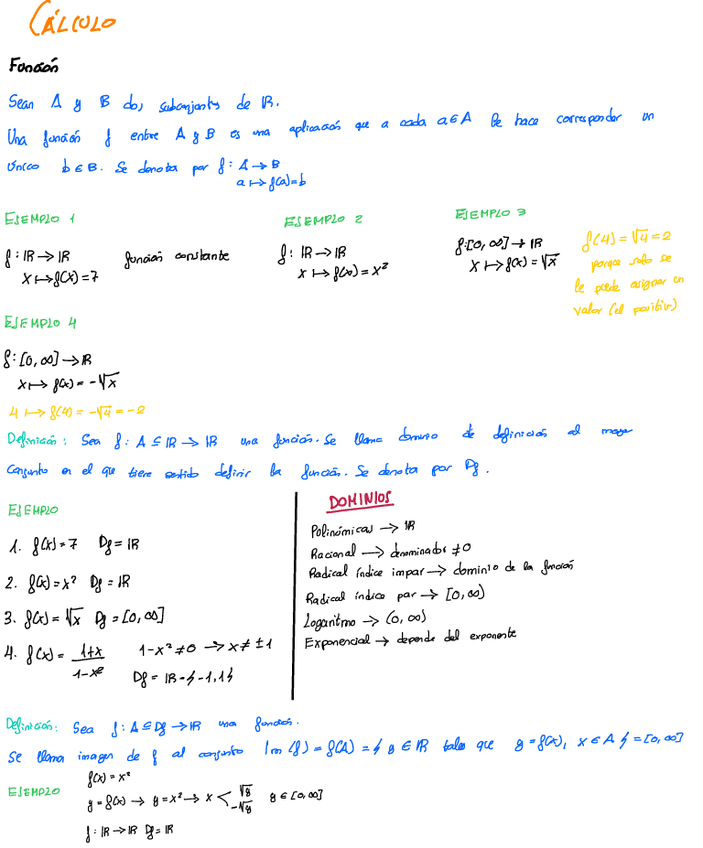 CÁLCULO
Función
Sean A y B dos subconjuntos de IR.
Una función f entre A y B es una aplicación que a cada a ∈ A le hace corresponder un
único b ∈ B. Se denota por f: A → B
a ↦ f(a) = b
EJEMPLO 1
f: IR → IR función constante
x ↦ f(x) = 7
EJEMPLO 2
f: IR → IR
x ↦ f(x) = x²
EJEMPLO 3
f: [0, ∞] → IR
x ↦ f(x) = √x
f(4) = √4 = 2
porque solo se
le puede asignar un
valor (el positivo)
EJEMPLO 4
f: [0, ∞] → IR
x ↦ f(x) = -√x
4 ↦ f(4) = -√4 = -2
Definición: Sea f: A ⊆ IR → IR una función. Se llama dominio de definición al mayor
conjunto en el que tiene sentido definir la función. Se denota por Df.
EJEMPLO
1. f(x) = 7 Df = IR
2. f(x) = x² Df = IR
3. f(x) = √x Df = [0, ∞]
4. f(x) = 1+x / 1-x² 1-x² ≠ 0 → x ≠ ±1
Df = IR - {-1, 1}
DOMINIOS
Polinómicas → IR
Racional → denominador ≠ 0
Radical índice impar → dominio de la función
Radical índice par → [0, ∞)
Logaritmo → (0, ∞)
Exponencial → depende del exponente
Definición: Sea f: A ⊆ Df → IR una función.
Se llama imagen de f al conjunto Im(f) = f(A) = { y ∈ IR tales que y = f(x), x ∈ A } = [0, ∞]
EJEMPLO
f(x) = x²
y = f(x) → y = x² → x < √y -√y y ∈ [0, ∞]
f: IR → IR Df = IR